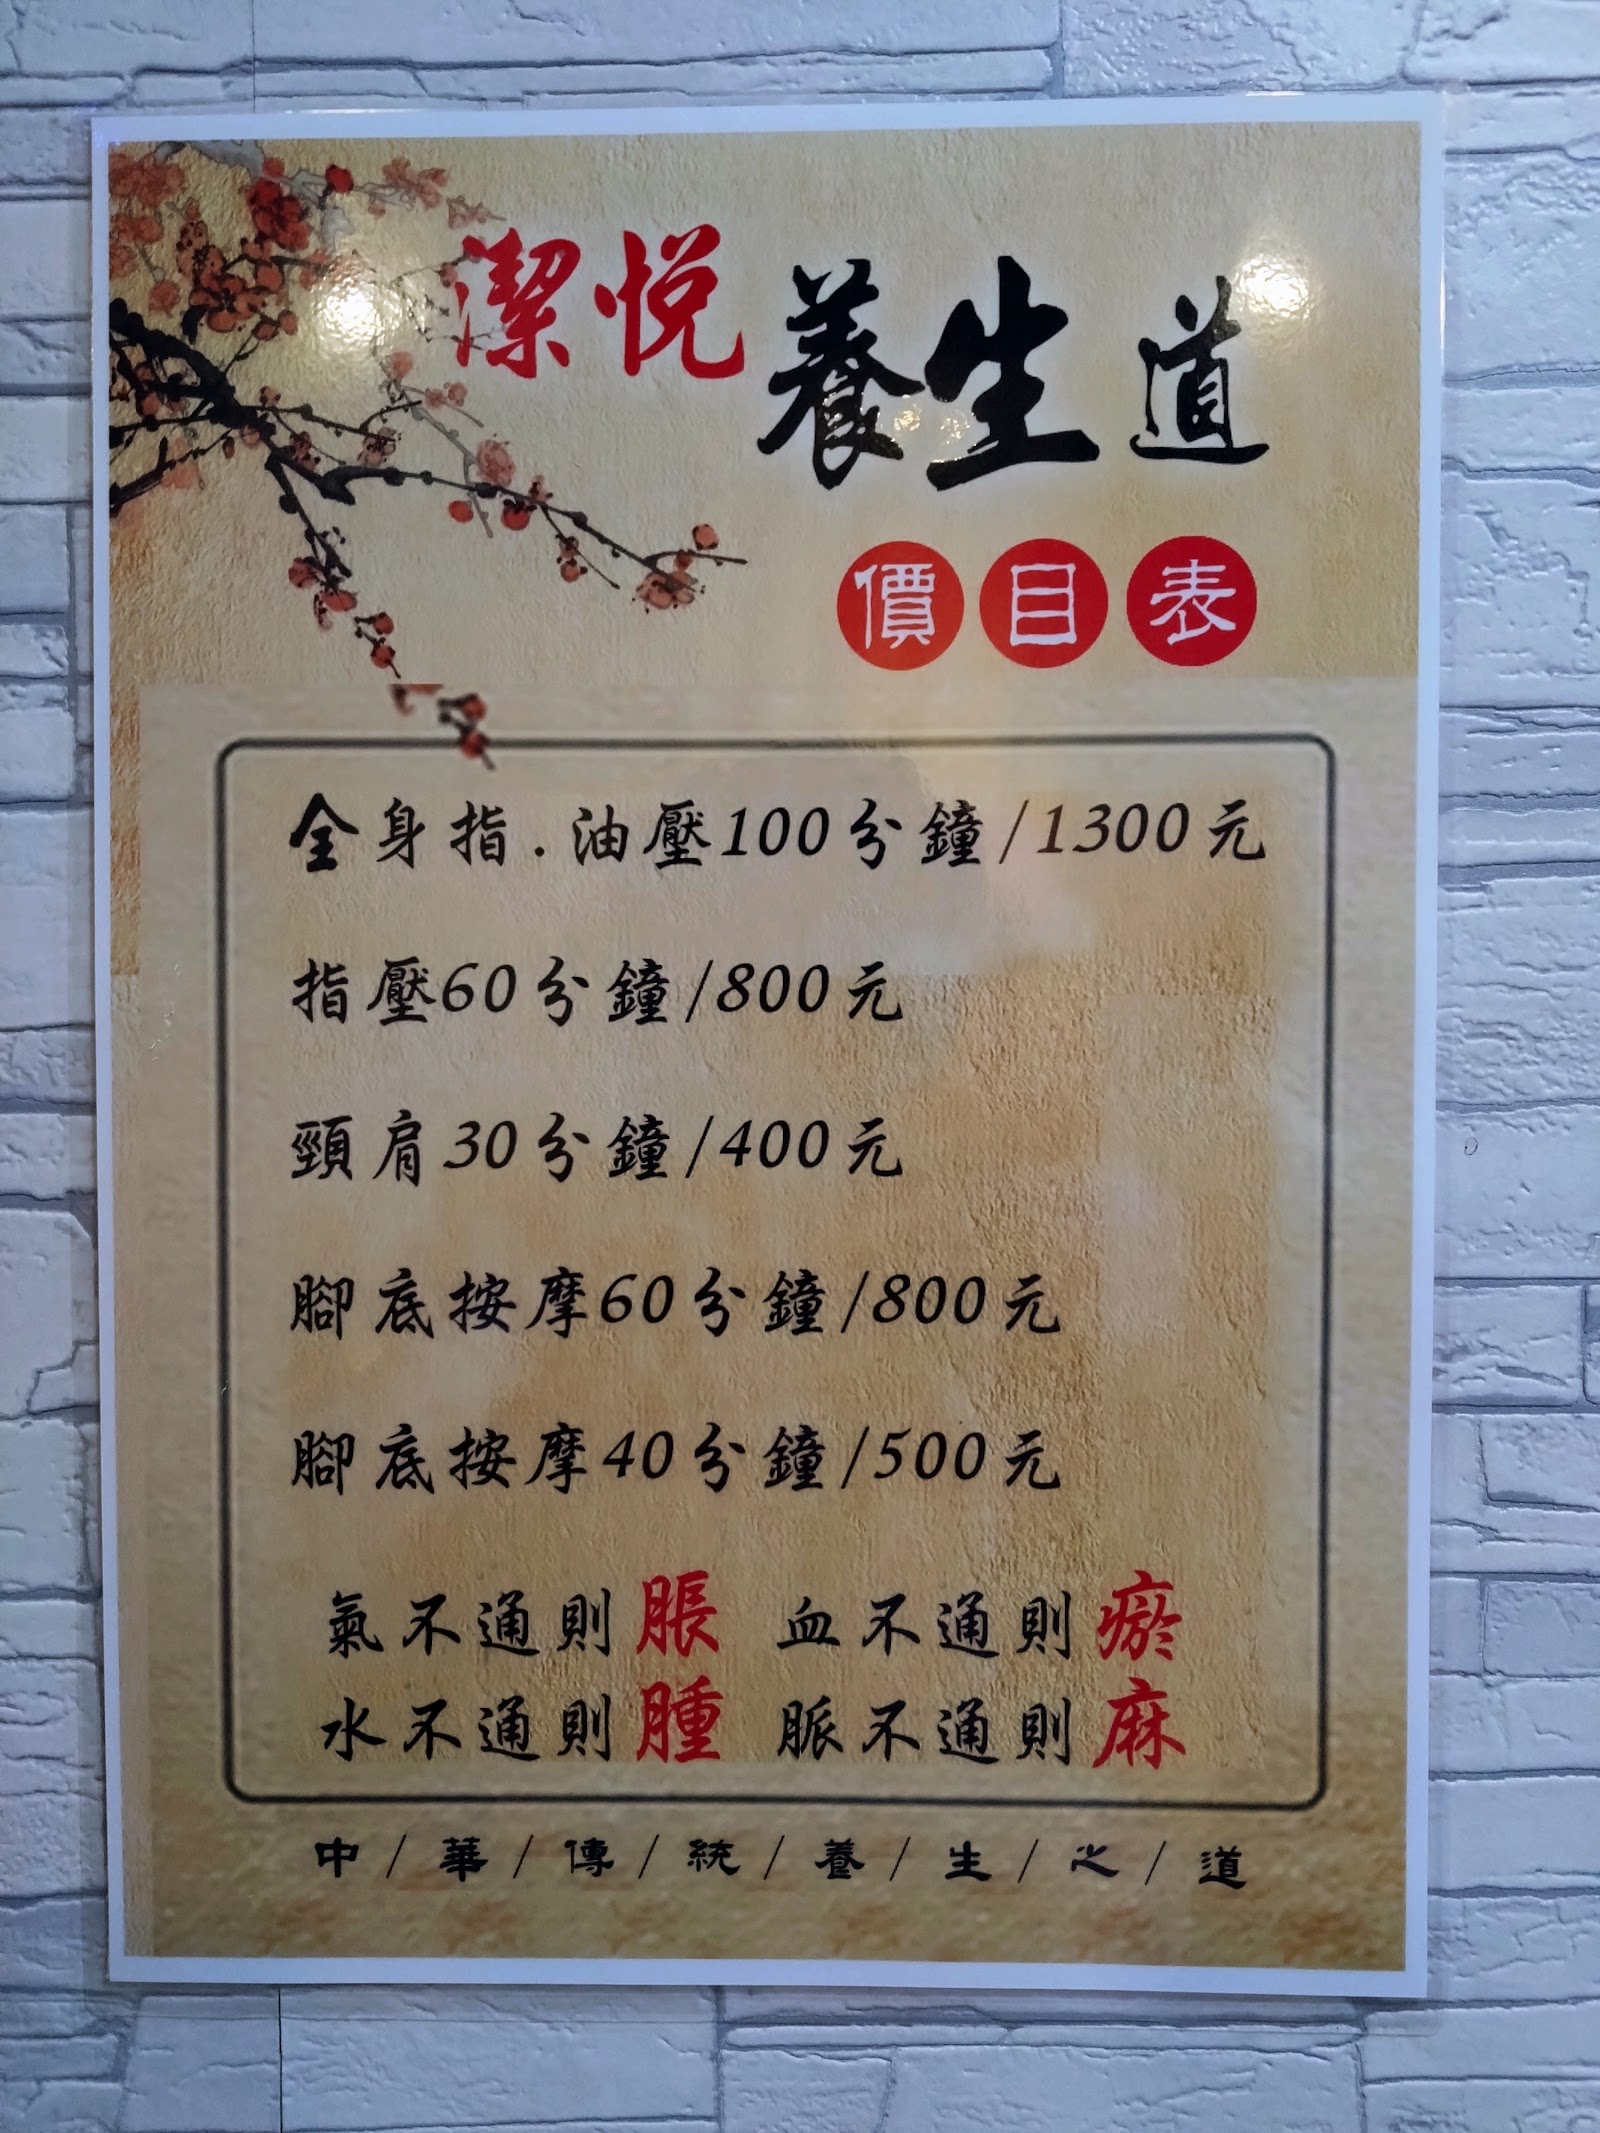 潔悅養生道
價目表
全身指.油壓100分鐘/1300元
指壓60分鐘/800元
頸肩30分鐘/400元
腳底按摩60分鐘/800元
腳底按摩40分鐘/500元
氣不通則脹 血不通則瘀
水不通則腫 脈不通則麻
中/華/傳/統/養/生/之/道